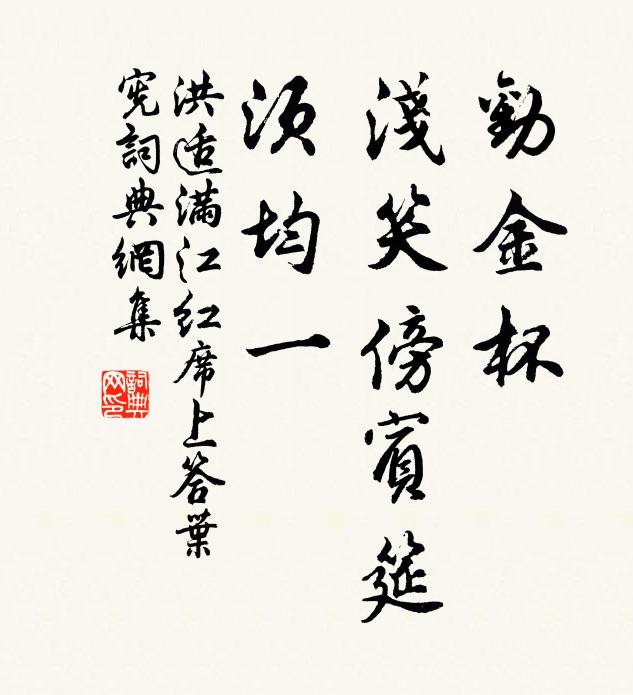 勸金杯
淺笑傍賓筵
須均一
洪适滿江紅席上答葉
憲詞典網集
詞典網印